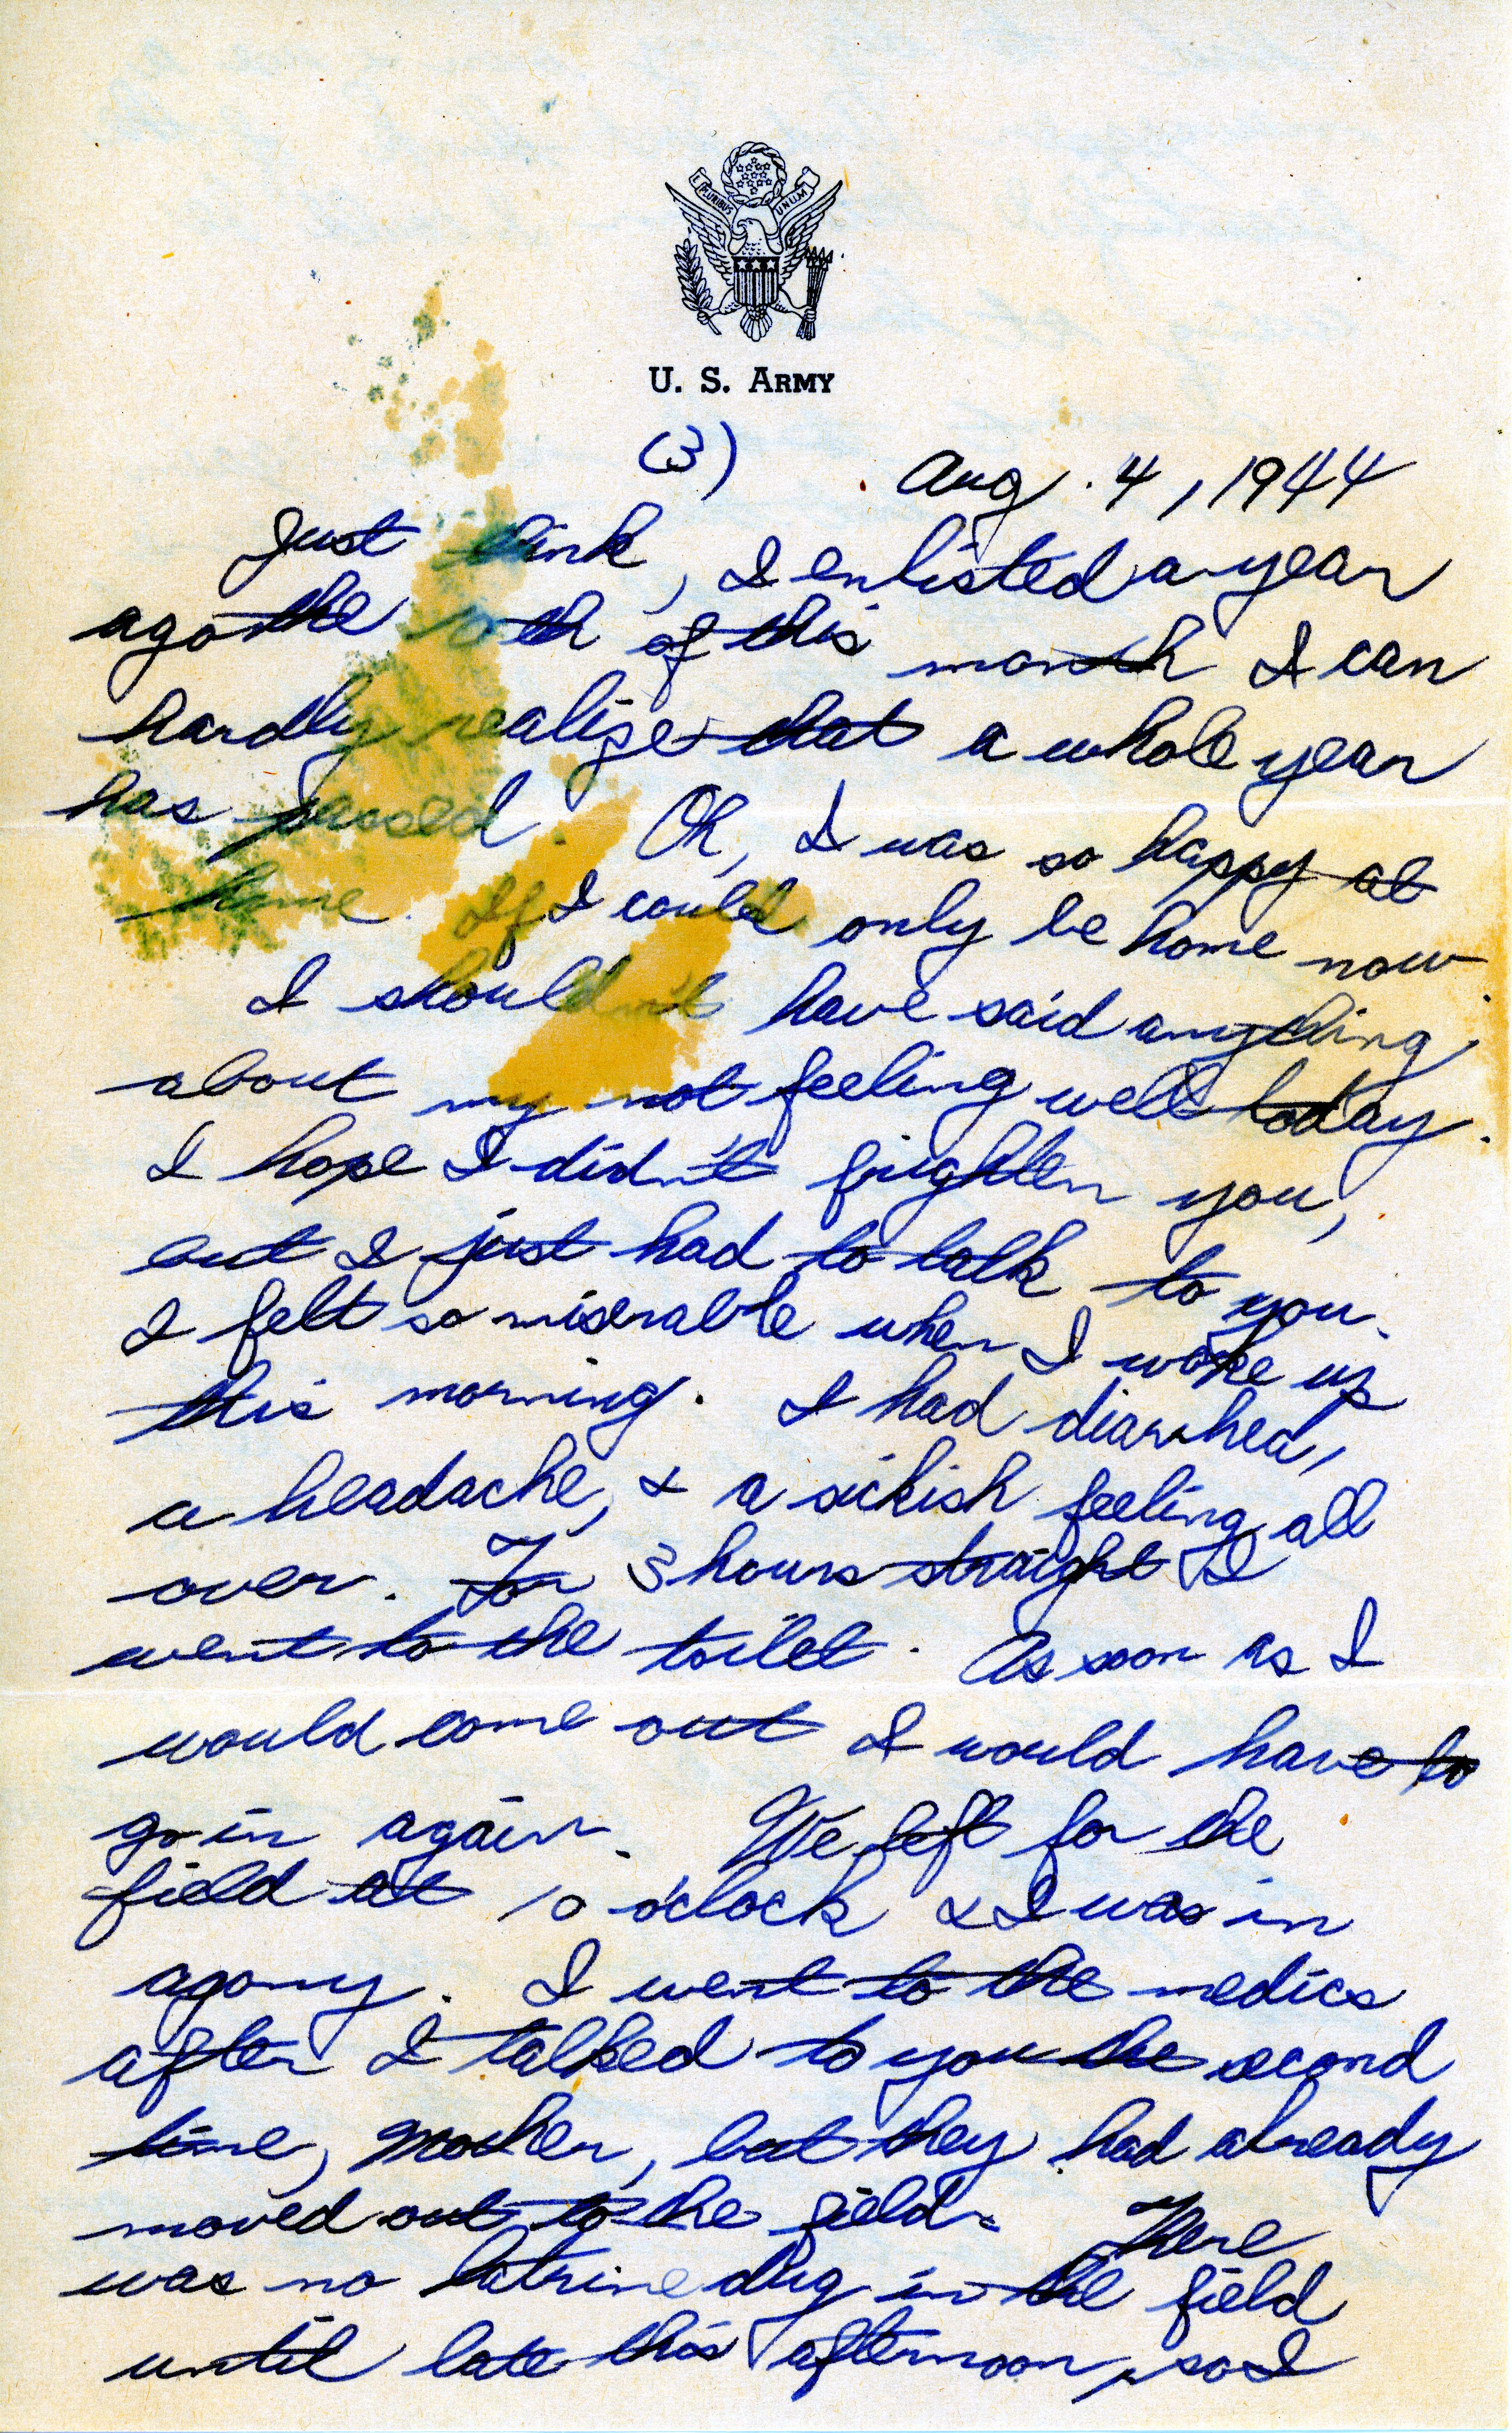 E PLURIBUS UNUM
U. S. ARMY
(3)
Aug. 4, 1944
Just think, I enlisted a year
ago the 10th of this month I can
hardly realize that a whole year
has passed. Oh, I was so happy at
home. If I could only be home now.
I shouldn't have said anything
about my not feeling well today.
I hope I didn't frighten you,
but I just had to talk to you.
I felt so miserable when I woke up
this morning. I had diarrhea,
a headache, & a sickish feeling all
over. For 3 hours straight I
went to the toilet. As soon as I
would come out I would have to
go in again. We left for the
field at 10 o'clock & I was in
agony. I went to the medics
after I talked to you the second
time, Mother, but they had already
moved out to the field. There
was no latrine dug in the field
until late this afternoon, so I